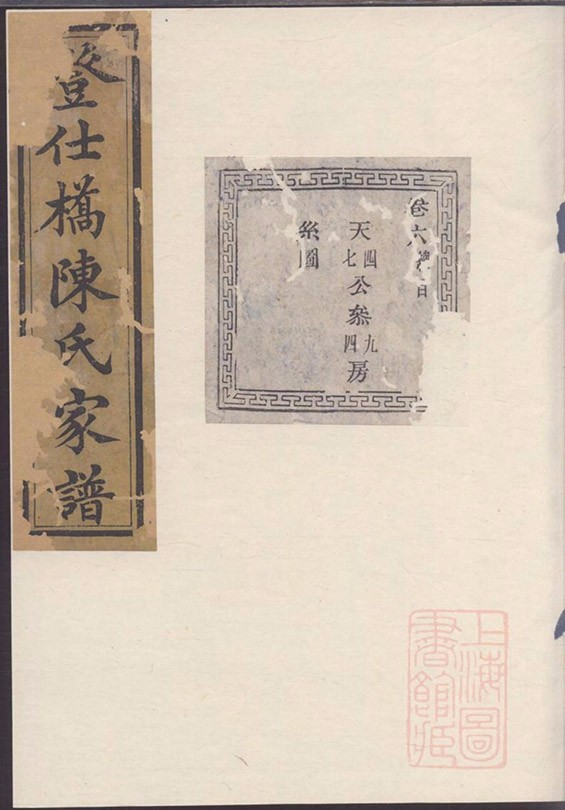 登仕橋陳氏家譜
卷六
天四七公叅九四房
系圖
上海圖
書館臧